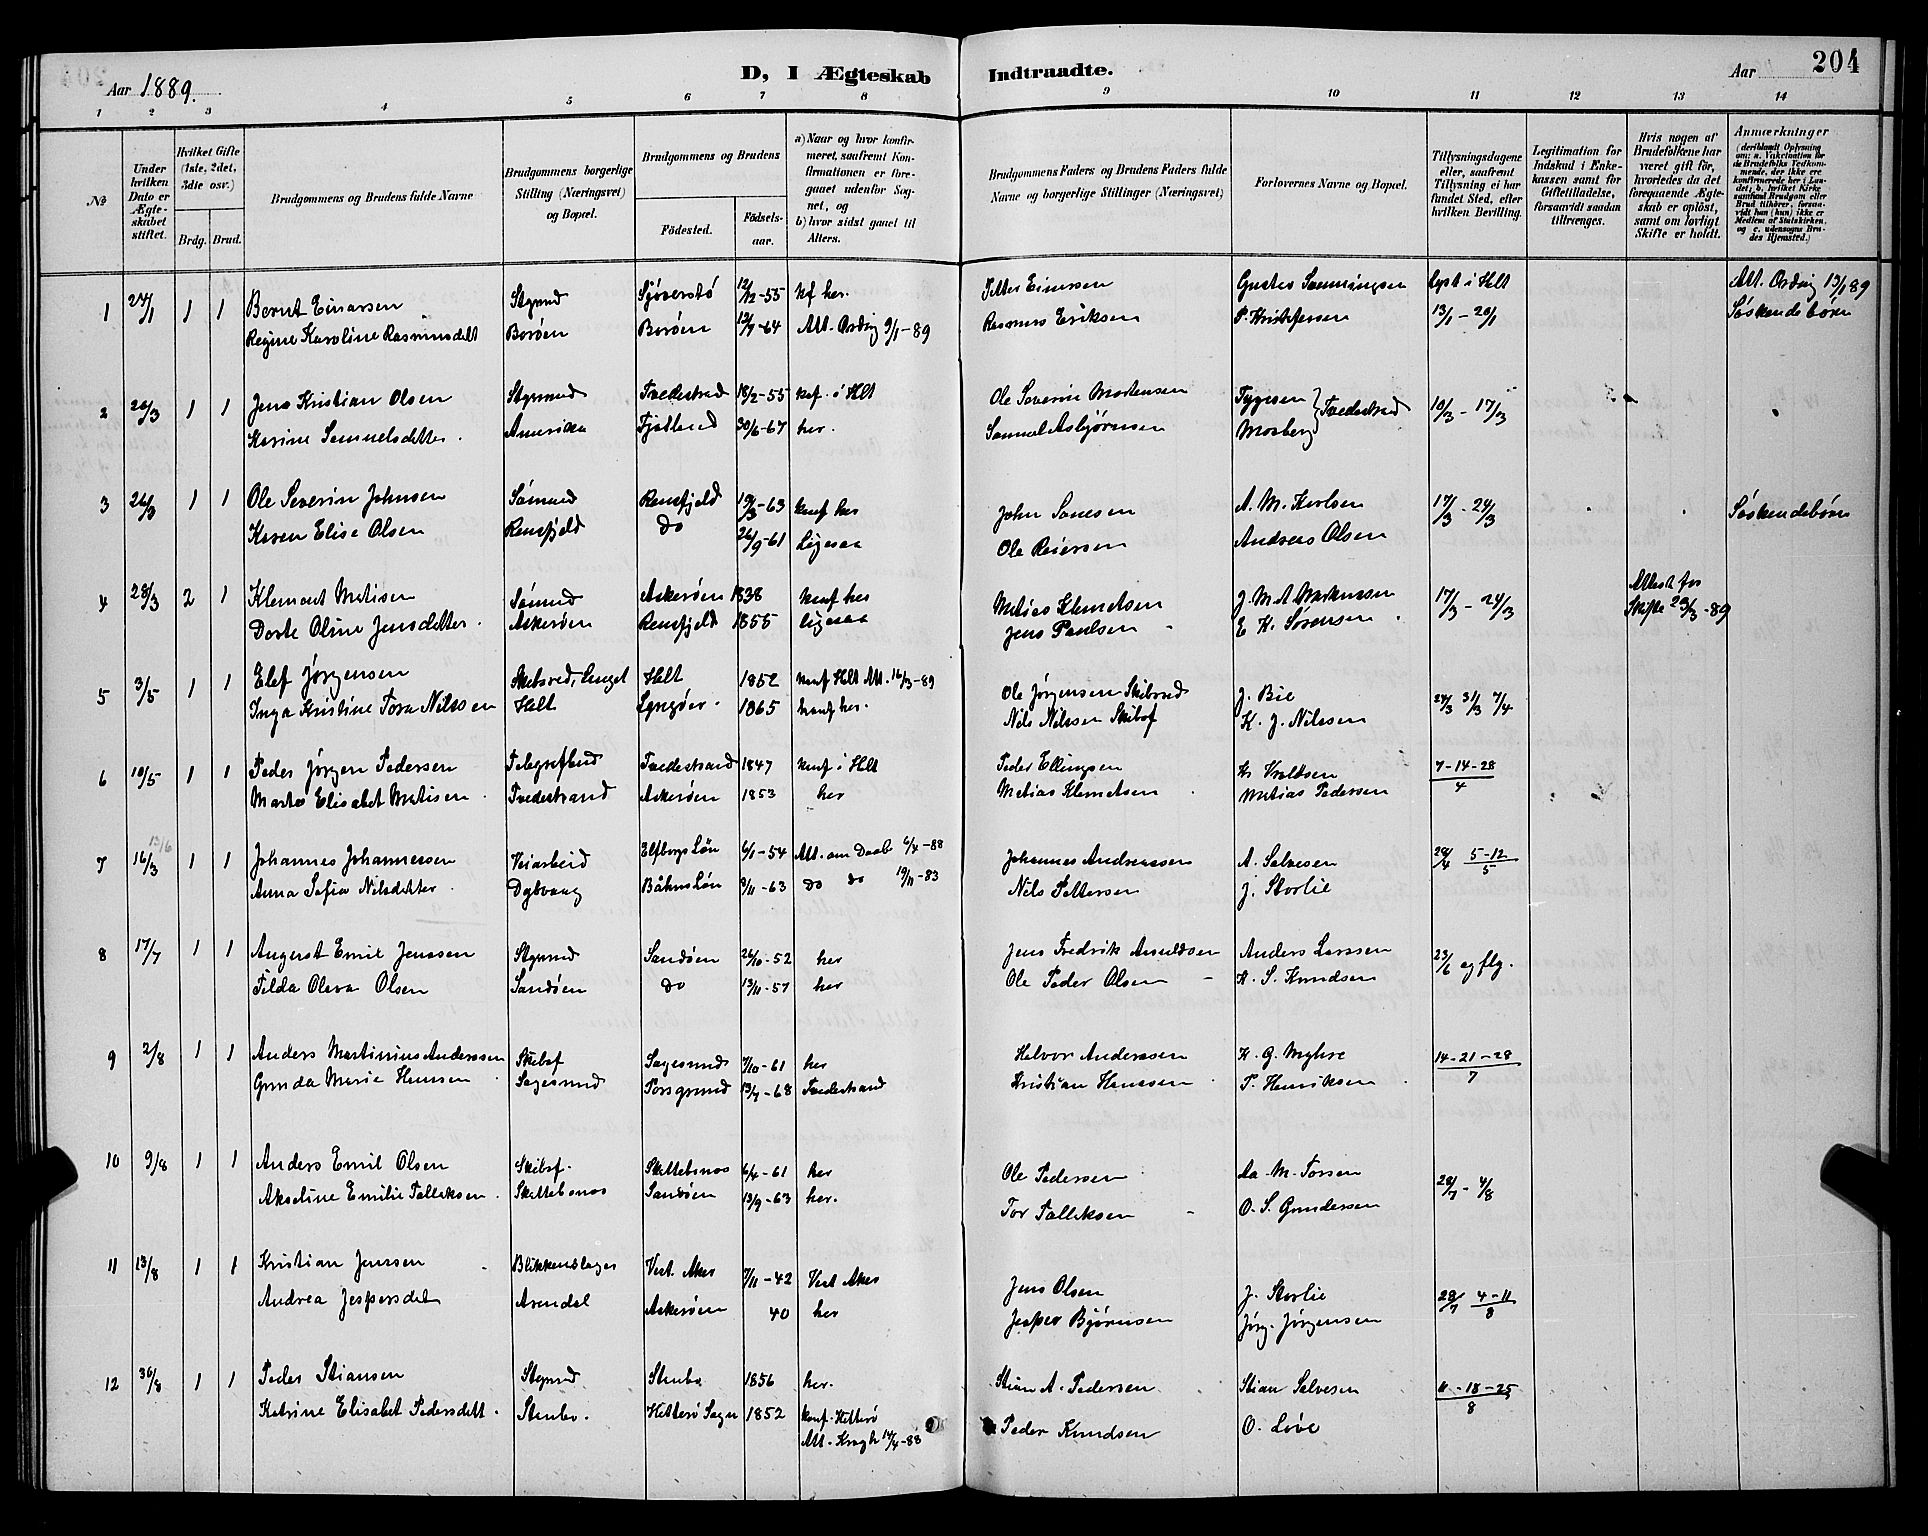 204
Aar 1889.
D, I Ægteskab Indtraadte.
Aar
1 2 3 4 5 6 7 8 9 10 11 12 13 14
No
Under hvilken Dato er Ægteskabet stiftet.
Hvilket Gifte (1ste, 2det, 3dte osv.)
Brdg. Brud.
Brudgommens og Brudens fulde Navne
Brudgommens borgerlige Stilling (Næringsvei) og Bopæl.
Brudgommens og Brudens
Födested. Födsels-aar.
a) Naar og hvor konfirmeret, saafremt Konfirmationen er foregaaet udenfor Sognet, og
b) hvor sidst gaaet til Alters.
Brudgommens Faders og Brudens Faders fulde Navne og borgerlige Stillinger (Næringsvei)
Forlovernes Navne og Bopæl.
Tillysningsdagene eller, saafremt Tillysning ei har fundet Sted, efter hvilken Bevilling.
Legitimation for Indskud i Enkekassen samt for Giftetilladelse, forsaavidt saadan tiltrænges.
Hvis nogen af Brudefolkene har været gift før, hvorledes da det foregaaende Ægteskab er opløst, samt om lovligt Skifte er holdt.
Anmærkninger
(deriblandt Oplysning om: a. Vakcination for de Brudefolks Vedkommende, der ikke ere konfirmerede her i Landet; b. hvilket Kirkesamfund Brudgom eller Brud tilhører, forsaavidt han (hun) ikke er Medlem af Statskirken, og c. udensogns Brudes Hjemsted.)
1 24/1 1 1 Bernt Einarsen Stymd 12/12-55 kf her. Petter Einersen lyst i Holt Att. Ording 13/1 89
Regine Karoline Rasmusdatt Borøen Borøen 12/7-64 Att. Ording 9/1-89 Rasmus Eriksen P. Kristofersen 13/1 - 20/1 Søskendebørn
2 26/3 1 1 Jens Kristian Olsen Stymd Tvedestrand 18/2-55 knf. i Holt Ole Severin Mortensen Tygesen Tvedestrand 10/3 - 17/3
Karine Samuelsdatter. Amerika 30/6-67 her. Samuel Asbjørnsen Mosberg
3 26/3 1 1 Ole Severin Johnsen Sømand Ramfjeld 19/3-63 konf her John A. M. Karlsen 17/3 - 24/3 Søskendebørn
Karen Elise Olsen Ramfjeld Do 26/9-61 Ligesaa Ole Reiersen Andreas Olsen
4 28/3 2 1 Klement Matisen Sømand Askerøen 1838 konf her Matias Klemetsen 17/3 - 24/3 Attest for Skifte 29/3-89
Dorte Oline Jensdatter. Askerøen Ramfjeld 1855 ligesaa Jens Paulsen E. K. Sørensen
5 3/5 1 1 Elef Jørgensen Holt 1852 konf Holt Att. 16/3-89 Ole Jørgensen J. Bie 24/3 31/3 7/4
Inga Kristine Tora Nilssen Holt Lyngør. 1865 konf her. Nils Nilssen Skibsf K. J. Nilssen
6 10/5 1 1 Peder Jørgen Pedersen Tvedestrand 1847 konf i Holt Peder Ellingsen 7-14-28/4
Marte Elisabet Matisen. Tvedestrand Askerøen 1853 her Matias Klemetsen Matias Pedersen
7 16/3 13/6 1 1 Johannes Johannessen Veiarbeid Elfborgs Län 6/1-54 Att. om Daab 6/4-88 Johannes Andreassen A. Salvesen 28/4 5-12/5
Anna Sofia Nilsdatter. Dybvaag Båhus Län 9/11-63 Do Do 19/11-83 Nils Pettersen J. Storlie
8 17/7 1 1 August Emil Jenssen Stymd Sandøen 26/10-52 her Jens Fredrik Arnuldsen Anders Larssen 23/6 og flg.
Tilda Oleva Olsen Sandøen Do 13/11-57 her Ole Peder Olsen K. S. Knudsen
9 2/8 1 1 Anders Martinius Anderssen Skibsf Sagesund 7/10-61 her Halvor Anderssen K. G. Myhre 14-21-28/7
Gunda Marie Hanssen Sagesund Porsgrund 13/7-68 Tvedestrand Kristian Hanssen P. Henriksen
10 9/8 1 1 Anders Emil Olsen Skibsf. Skottebnes 6/4-61 her Ole Pedersen Aa. M. Torsen 28/7 - 4/8
Akseline Emilie Tallaksen. Sandøen 13/9-63 her. Tor Tallaksen O. S. Gundersen
11 13/8 1 1 Kristian Jenssen Blikkenslager Vest. Aker 7/11-42 Vest Aker Jens Olsen J. Storlie 28/7 4-11/8
Andrea Jespersdat Arendal Askerøen 40 her Jesper Bjørnsen Jørg. Jørgensen
12 30/8 1 1 Peder Stiansen Stymd 1856 her. Stian A. Pedersen Stian Salvesen 11-18-25/8
Katrine Elisabet Pedersdatt. Hitterø Sogn 1852 konf. Hitterø Peder Knudsen O. Løve
Att. Kragh 14/4-88